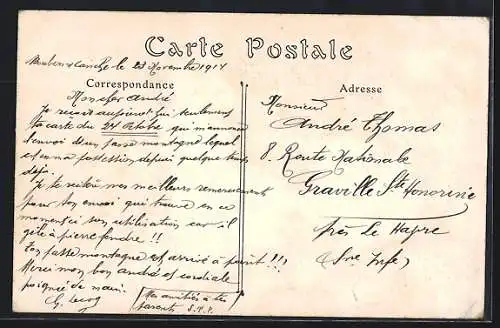 Carte Postale
le 23 Novembre 1914
Correspondance
Adresse
Mon cher André
Je reçois aujourd'hui seulement
ta carte du 24 Octobre qui m'annonce
l'envoi de un passe montagne lequel
est en ma possession depuis quelque temps
déjà.
Je te réitère mes meilleurs remerciements
pour ton envoi qui trouve en ce
moment ci son utilisation car il
gèle à pierre fendre !!
Ton passe montagne est arrivé à point !!!
Merci mon bon André et cordiale
poignée de main.
Mes amitiés à tes
parents S.V.P.
Monsieur
André Thomas
8. Route Nationale
Graville Ste Honorine
près Le Havre
(Sne Infre)